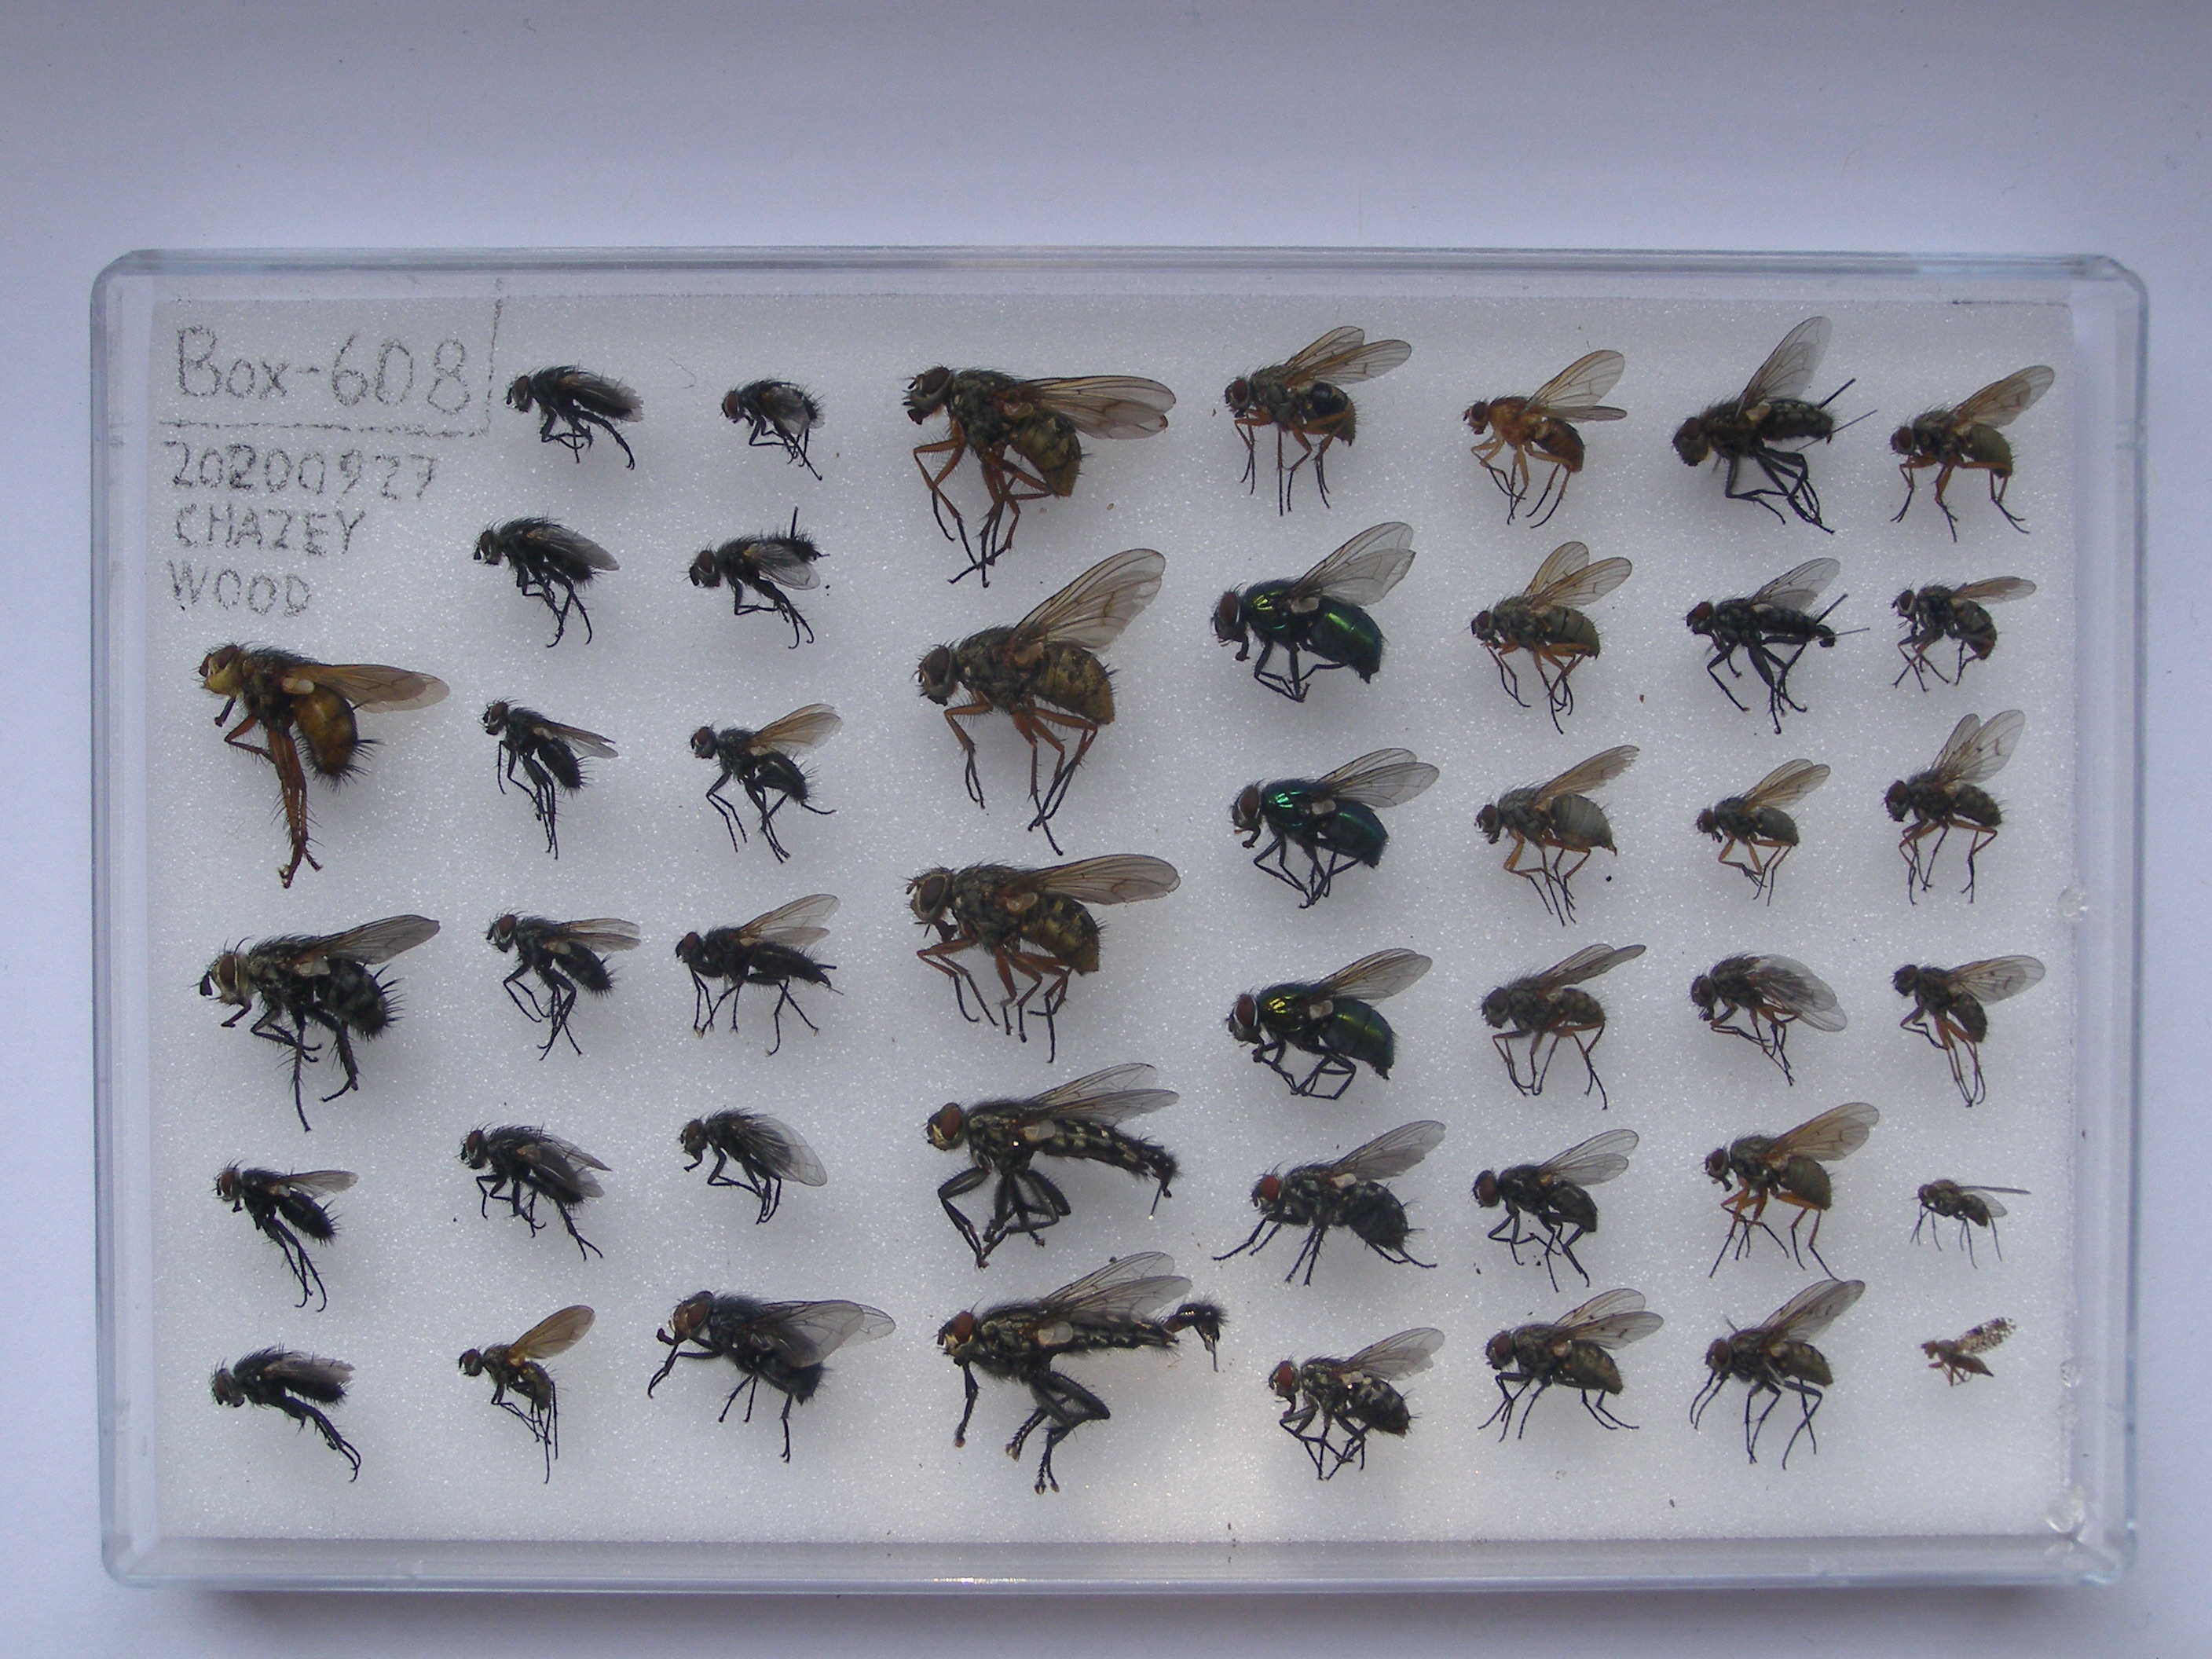 Box-608
20200927
CHAZEY
WOOD